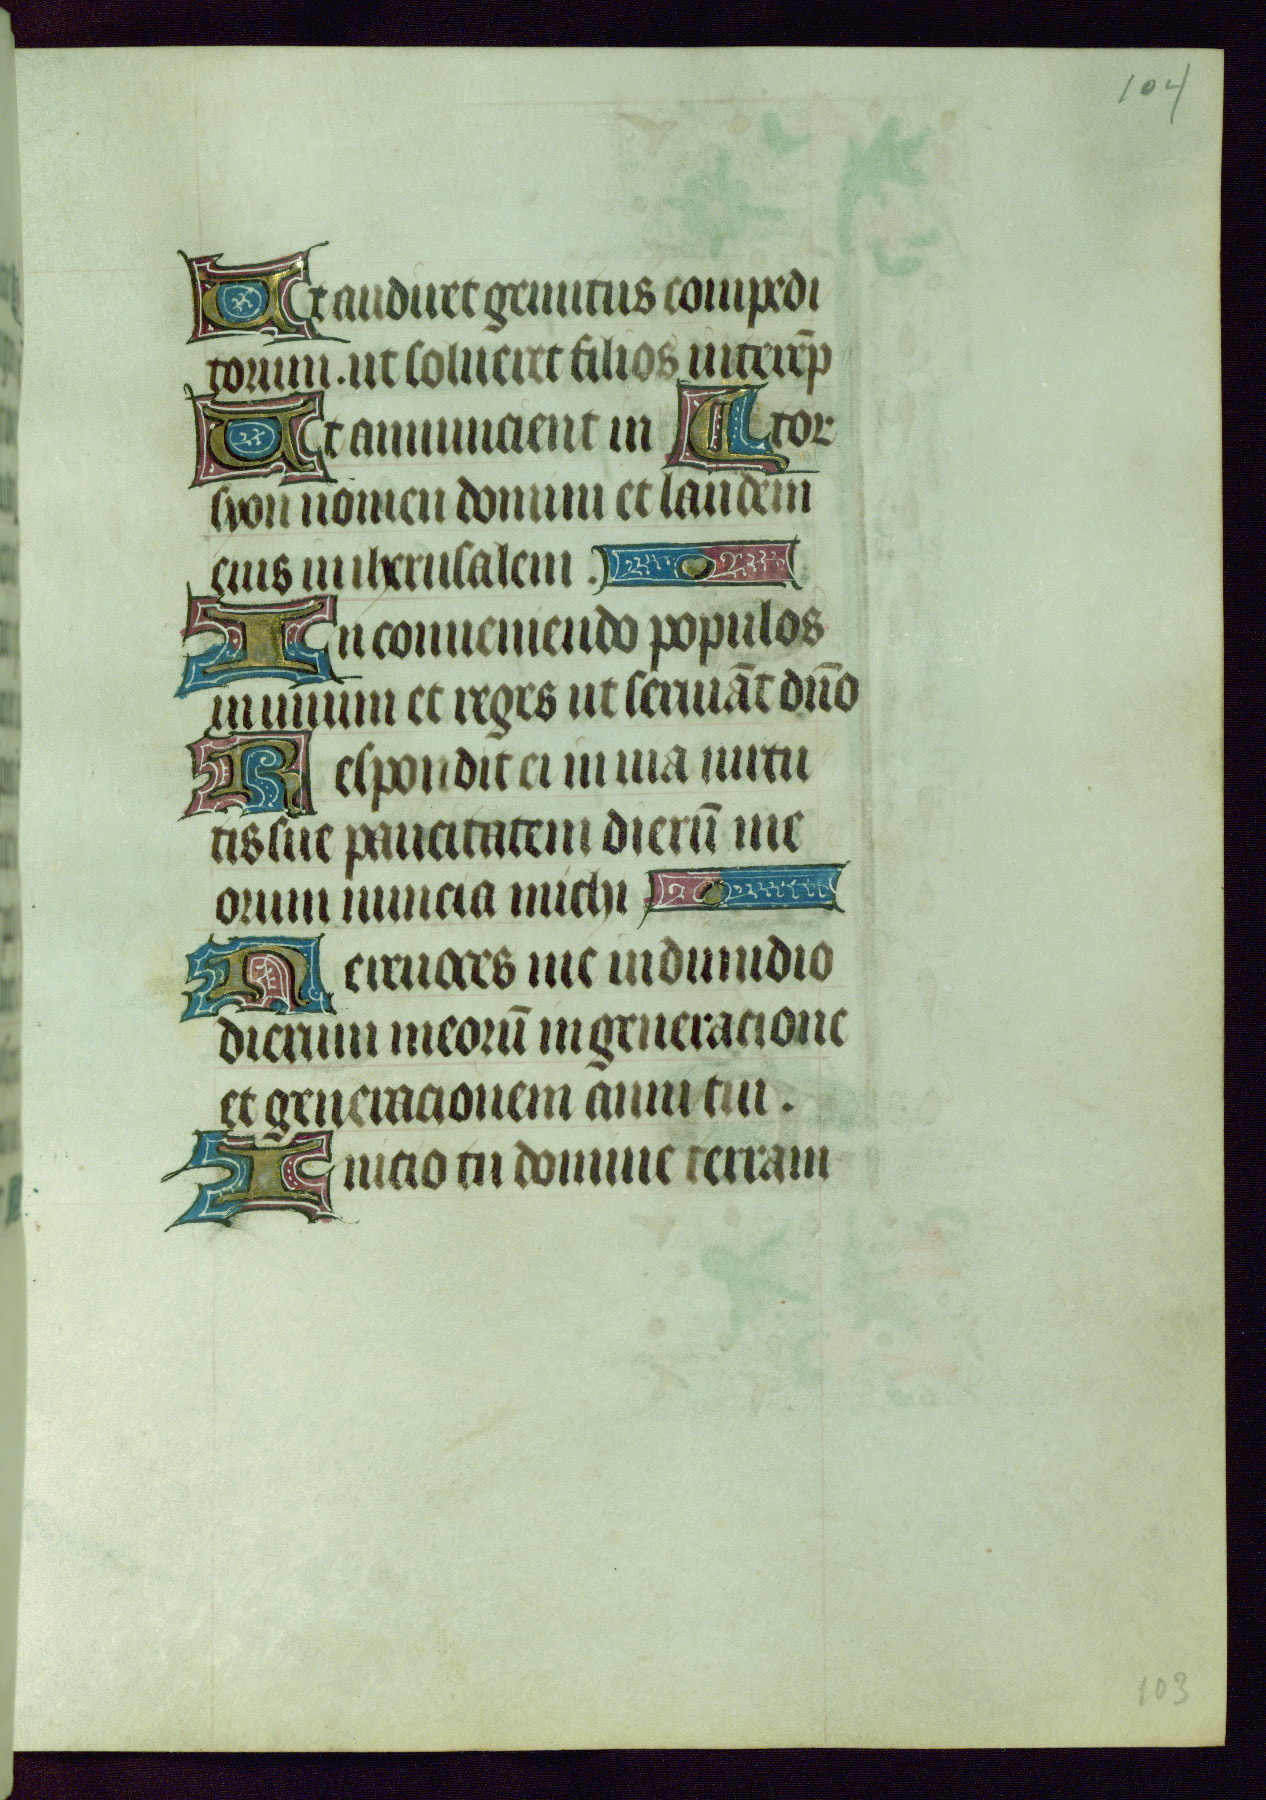 104
Ut audiret gemitus compedi
torum. ut solueret filios interēp
Ut annuncient in tor
syon nomen domini et laudem
eius in iherusalem .
In conueniendo populos
in unum et reges ut seruiāt dn̄o
Respondit ei in uia uirtu
tis sue paucitatem dierū me
orum nuncia michi
Ne reuoces me in dimidio
dierum meorū in generacione
et generacionem anni tui .
Inicio tu domine terram
103